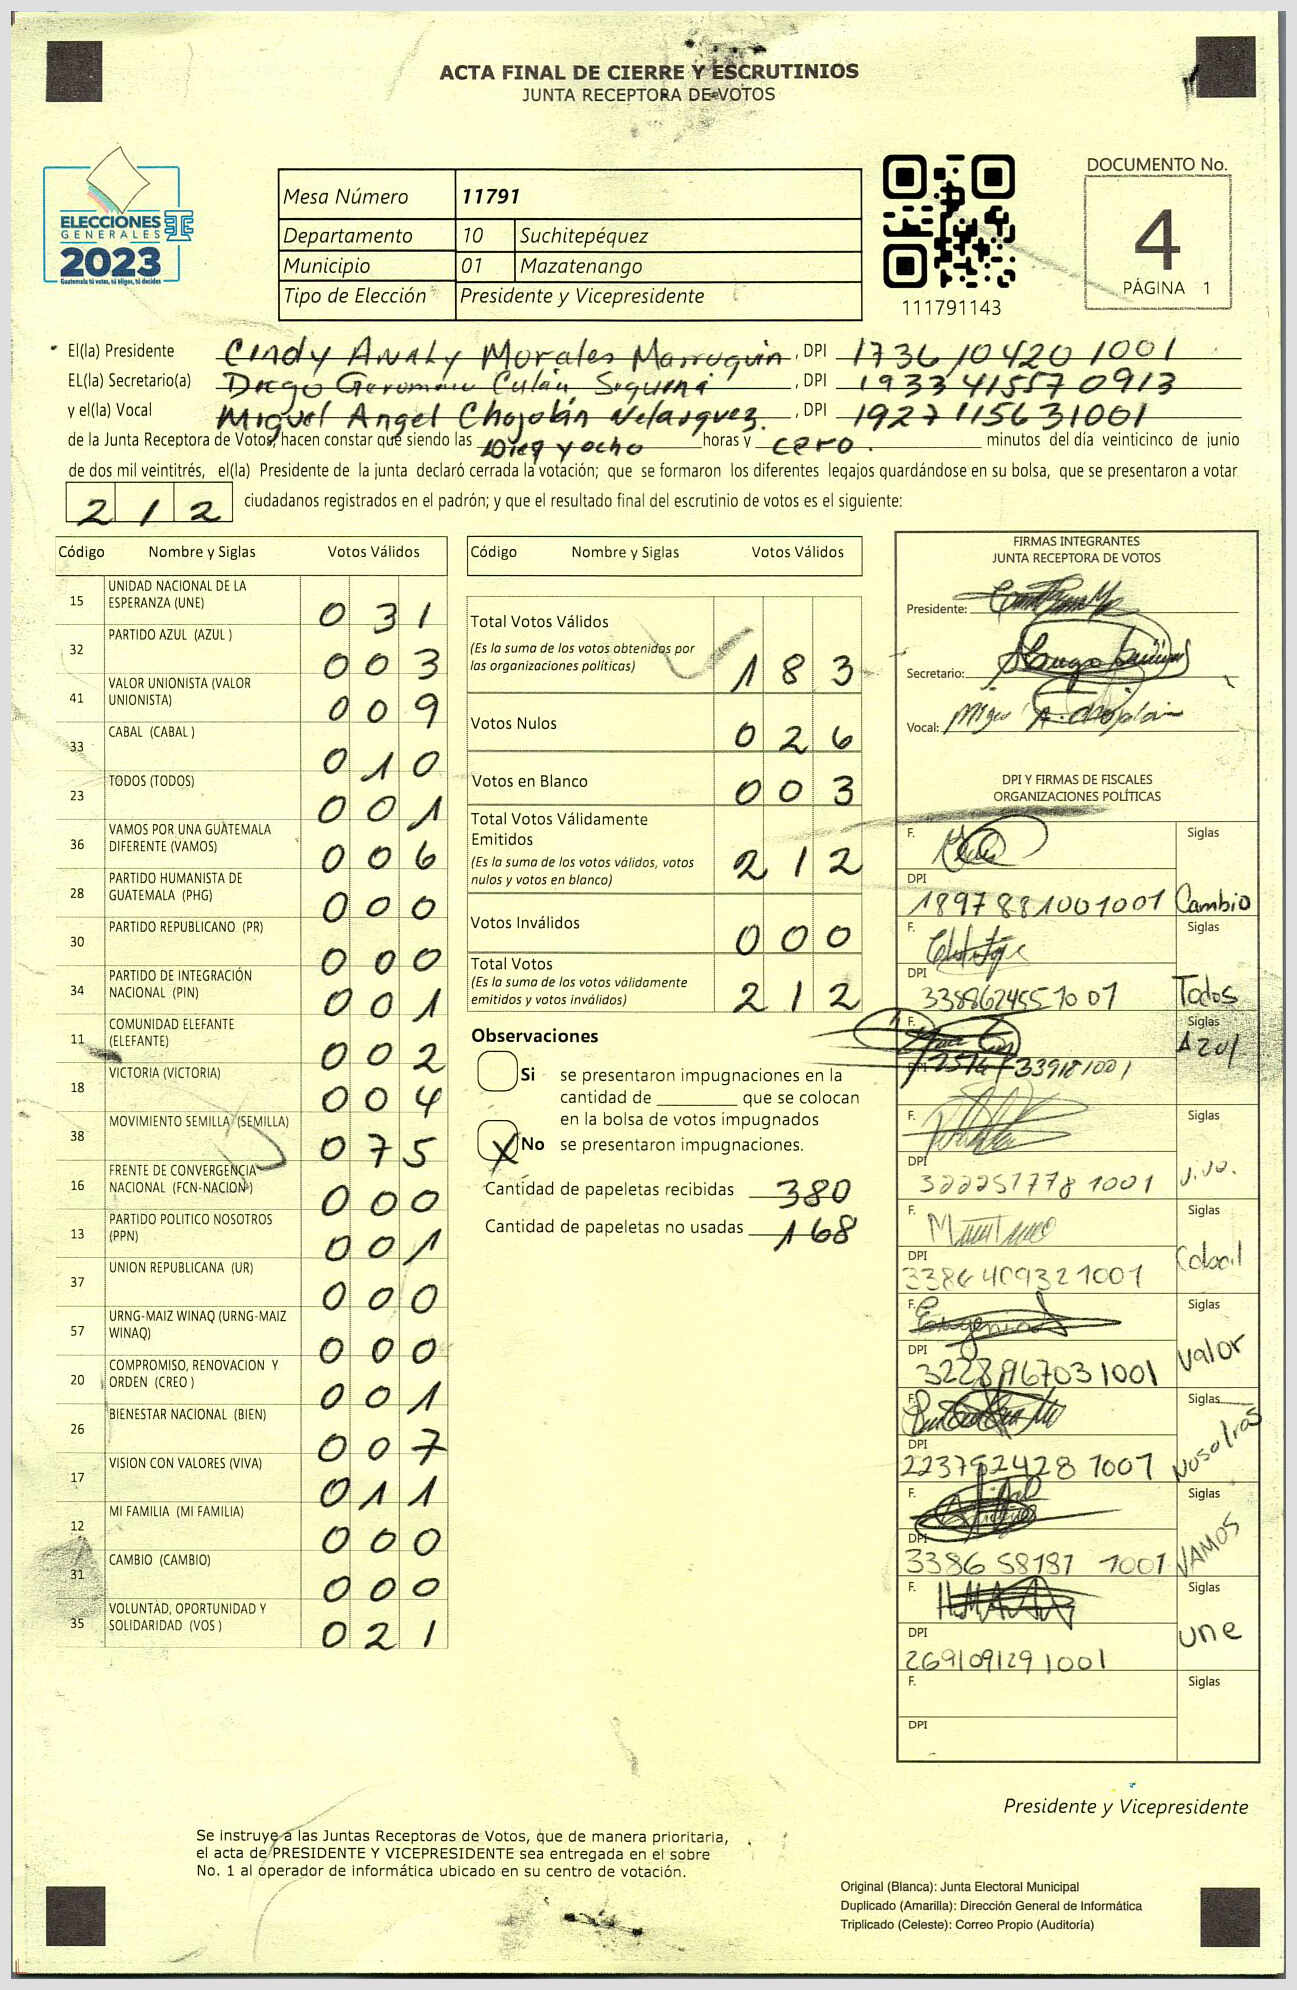 ACTA FINAL DE CIERRE Y ESCRUTINIOS
JUNTA RECEPTORA DE VOTOS
ELECCIONES
GENERALES
2023
Guatemala tú votas, tú eliges, tú decides
Mesa Número 11791
Departamento 10 Suchitepéquez
Municipio 01 Mazatenango
Tipo de Elección Presidente y Vicepresidente
111791143
DOCUMENTO No.
4
PÁGINA 1
El(la) Presidente Cindy Analy Morales Marroquin, DPI 1736104201001
EL(la) Secretario(a) Diego Geronimo Culán, DPI 1933415570913
y el(la) Vocal Miguel Angel Chojolán Velasquez., DPI 1927115631001
de la Junta Receptora de Votos, hacen constar que siendo las Diez y ocho horas y cero. minutos del día veinticinco de junio
de dos mil veintitrés, el(la) Presidente de la junta declaró cerrada la votación; que se formaron los diferentes legajos guardándose en su bolsa, que se presentaron a votar
212 ciudadanos registrados en el padrón; y que el resultado final del escrutinio de votos es el siguiente:
Código Nombre y Siglas Votos Válidos
15 UNIDAD NACIONAL DE LA
ESPERANZA (UNE) 031
32 PARTIDO AZUL (AZUL ) 003
41 VALOR UNIONISTA (VALOR
UNIONISTA) 009
33 CABAL (CABAL ) 010
23 TODOS (TODOS) 001
36 VAMOS POR UNA GUATEMALA
DIFERENTE (VAMOS) 006
28 PARTIDO HUMANISTA DE
GUATEMALA (PHG) 000
30 PARTIDO REPUBLICANO (PR) 000
34 PARTIDO DE INTEGRACIÓN
NACIONAL (PIN) 001
11 COMUNIDAD ELEFANTE
(ELEFANTE) 002
18 VICTORIA (VICTORIA) 004
38 MOVIMIENTO SEMILLA (SEMILLA) 075
16 FRENTE DE CONVERGENCIA
NACIONAL (FCN-NACION) 000
13 PARTIDO POLITICO NOSOTROS
(PPN) 001
37 UNION REPUBLICANA (UR) 000
57 URNG-MAIZ WINAQ (URNG-MAIZ
WINAQ) 000
20 COMPROMISO, RENOVACION Y
ORDEN (CREO ) 001
26 BIENESTAR NACIONAL (BIEN) 007
17 VISION CON VALORES (VIVA) 011
12 MI FAMILIA (MI FAMILIA) 000
31 CAMBIO (CAMBIO) 000
35 VOLUNTAD, OPORTUNIDAD Y
SOLIDARIDAD (VOS ) 021
Código Nombre y Siglas Votos Válidos
Total Votos Válidos
(Es la suma de los votos obtenidos por
las organizaciones políticas) 183
Votos Nulos 026
Votos en Blanco 003
Total Votos Válidamente
Emitidos
(Es la suma de los votos válidos, votos
nulos y votos en blanco) 212
Votos Inválidos 000
Total Votos
(Es la suma de los votos válidamente
emitidos y votos inválidos) 212
Observaciones
Si se presentaron impugnaciones en la
cantidad de ________ que se colocan
en la bolsa de votos impugnados
X No se presentaron impugnaciones.
Cantidad de papeletas recibidas 380
Cantidad de papeletas no usadas 168
FIRMAS INTEGRANTES
JUNTA RECEPTORA DE VOTOS
Presidente:
Secretario:
Vocal:
DPI Y FIRMAS DE FISCALES
ORGANIZACIONES POLÍTICAS
F. Siglas
DPI
1897881001001 Cambio
F. Siglas
DPI
3388624551001 Todos
F. Siglas
Azul
F. Siglas
DPI
3222517781001
F. Siglas
DPI
3386409321001 Cabal
F. Siglas
DPI
3228967031001 Valor
F. Siglas
DPI
2237524281001 Nosotros
F. Siglas
DPI
3386581811001 VAMOS
F. Siglas
DPI
2691091291001 une
F. Siglas
DPI
Presidente y Vicepresidente
Se instruye a las Juntas Receptoras de Votos, que de manera prioritaria,
el acta de PRESIDENTE Y VICEPRESIDENTE sea entregada en el sobre
No. 1 al operador de informática ubicado en su centro de votación.
Original (Blanca): Junta Electoral Municipal
Duplicado (Amarilla): Dirección General de Informática
Triplicado (Celeste): Correo Propio (Auditoría)